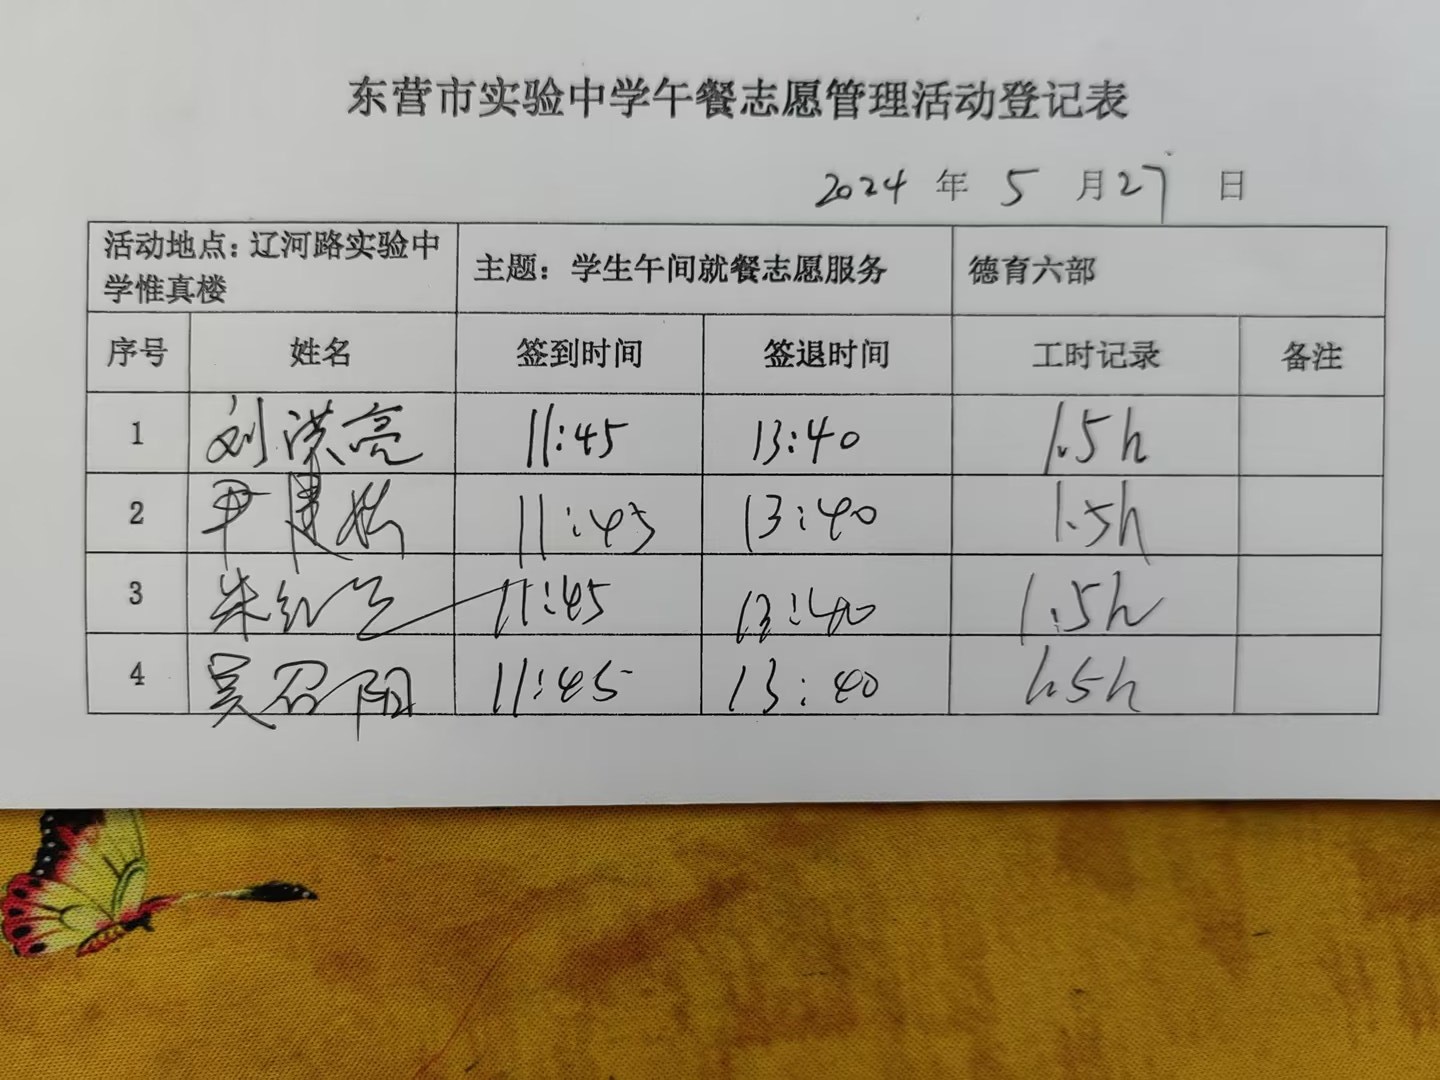 东营市实验中学午餐志愿管理活动登记表
2024 年 5 月 27 日
活动地点：辽河路实验中
学惟真楼
主题：学生午间就餐志愿服务
德育六部
序号 姓名 签到时间 签退时间 工时记录 备注
1 刘洪亮 11:45 13:40 1.5h
2 尹建 11:45 13:40 1.5h
3 朱红 11:45 13:40 1.5h
4 吴召阳 11:45 13:40 1.5h